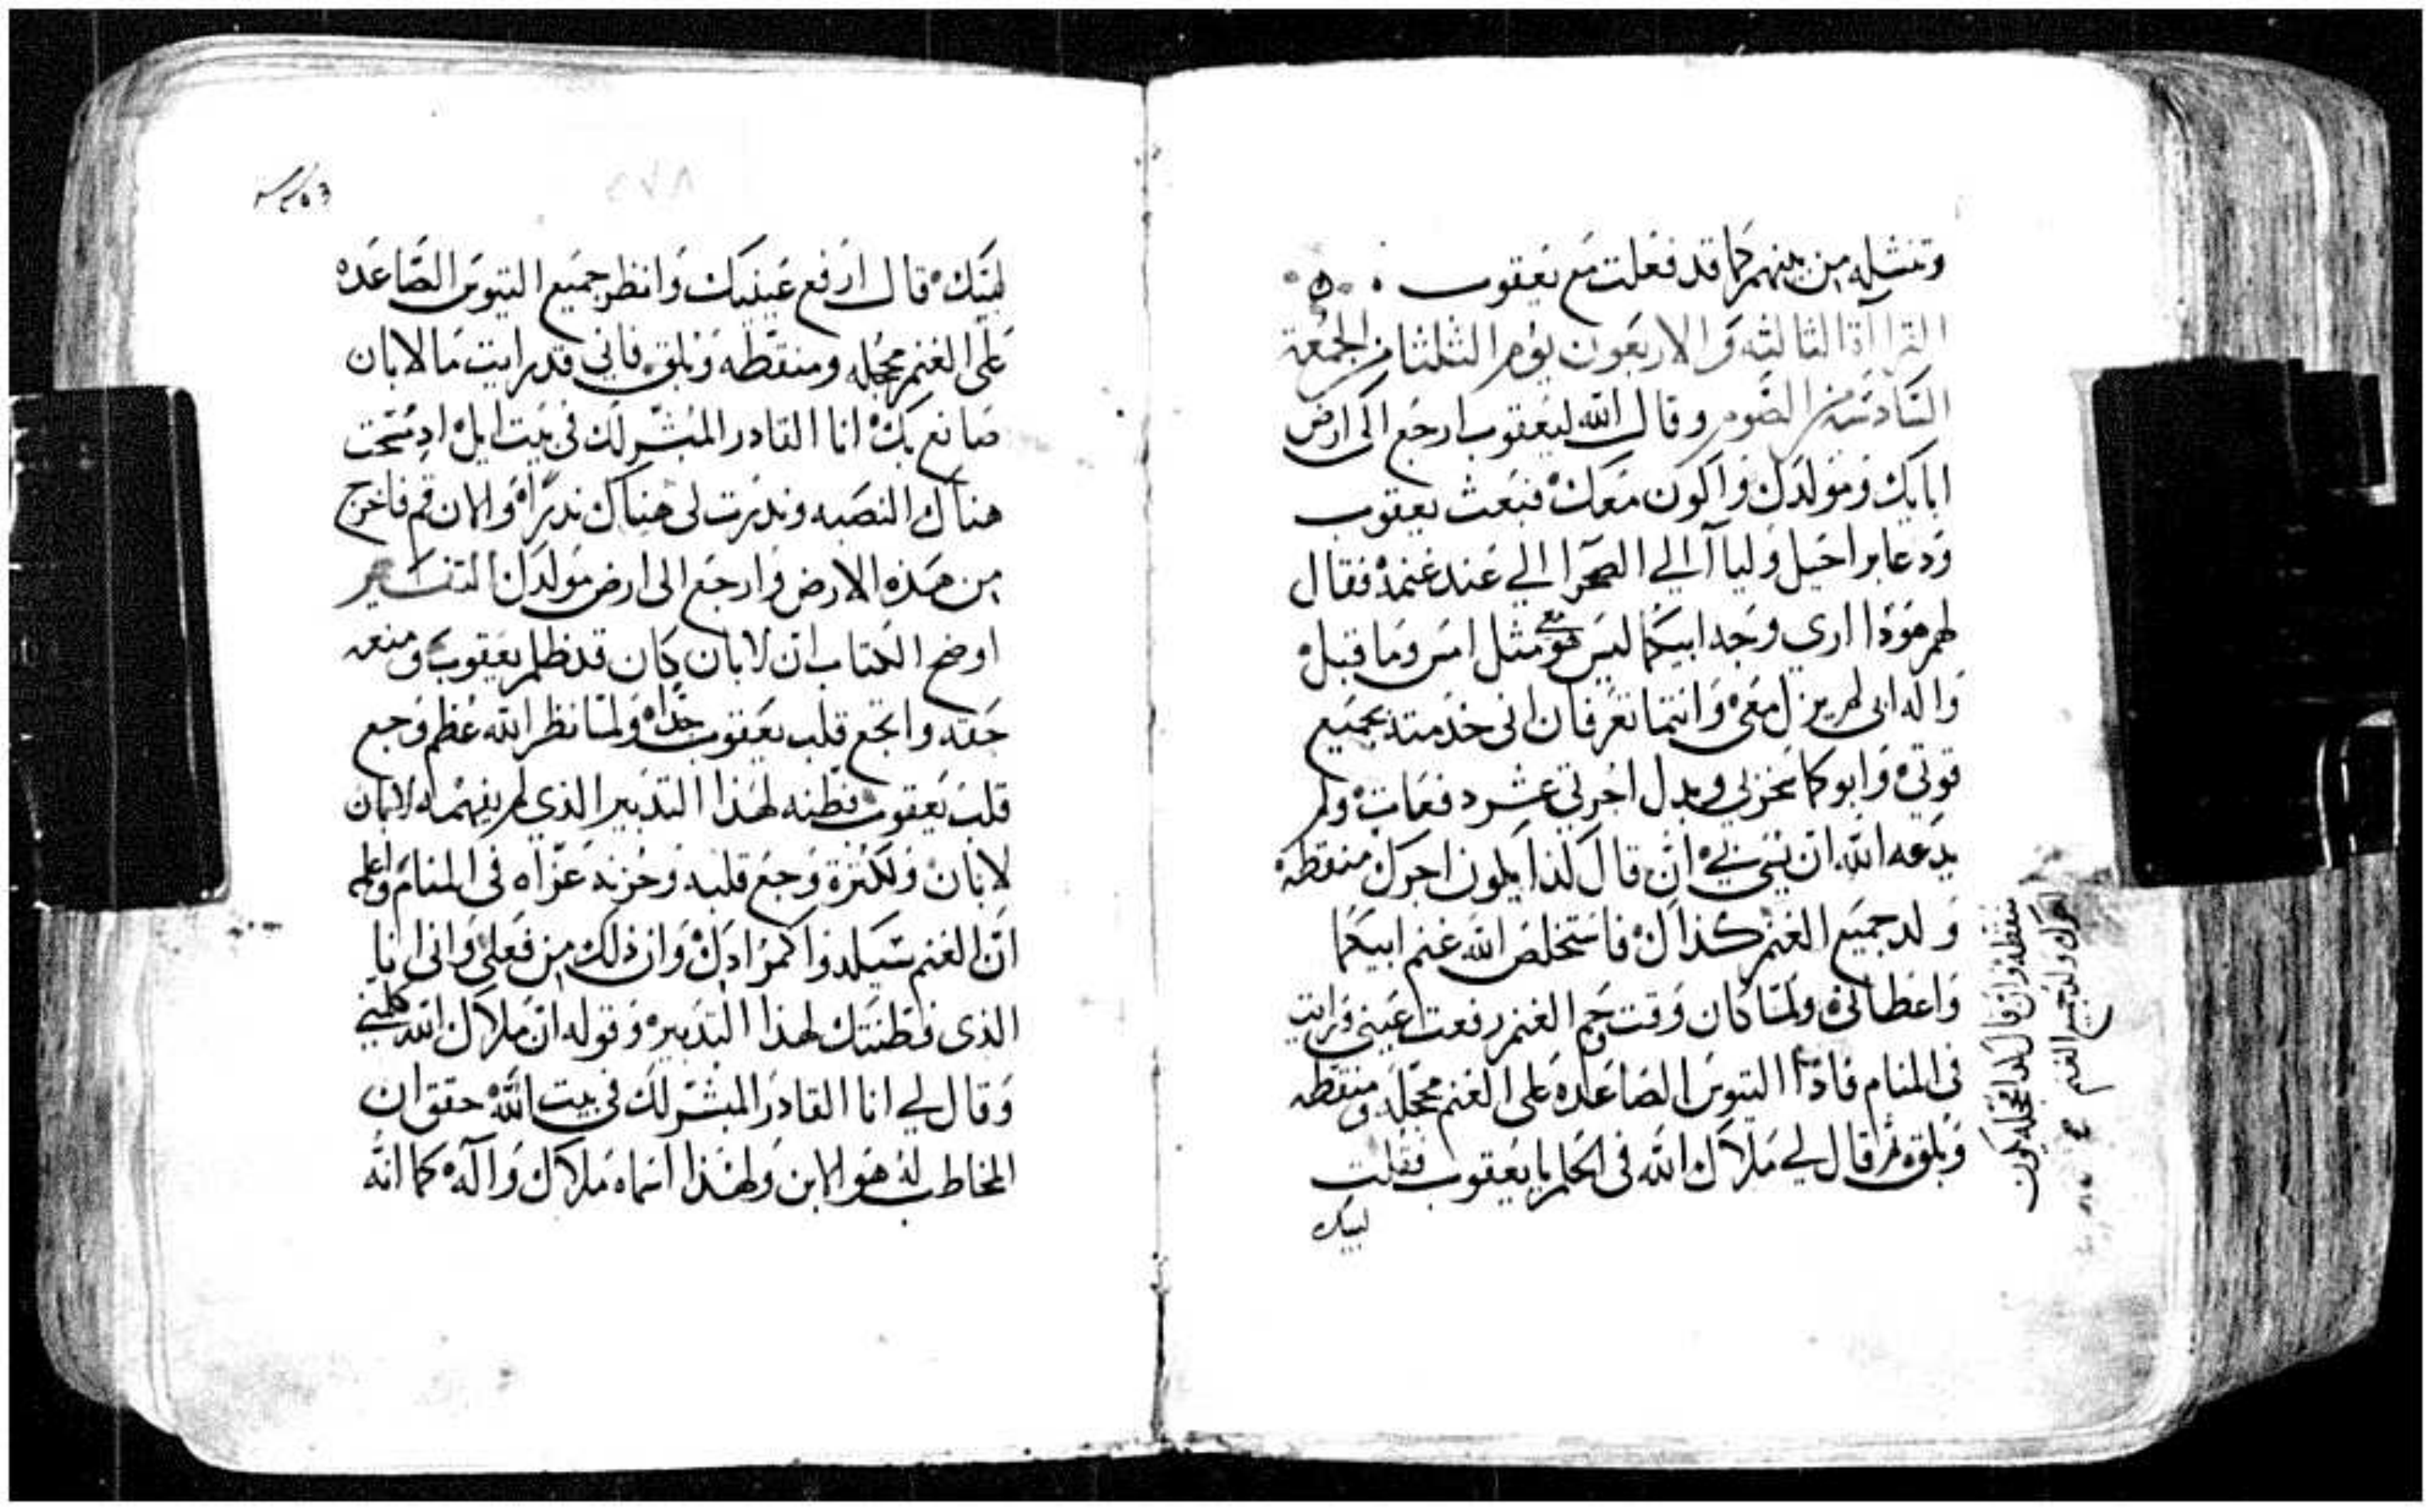 وتنشله من بينهم كما قد فعلت مع يعقوب
القراآة الثالثه والاربعون يوم الثلثا من الجمعة
السادسه من الصوم وقال الله ليعقوب ارجع الى ارض
ابايك ومولدك واكون معك فبعث يعقوب
ودعا براحيل وليا الي الصحرا الي عند غنمه فقال
لهم هوذا اري وجه ابيكما ليس هو معي مثل امس وما قبل
واله ابى لم يزل معي وانتما تعرفان انى خدمته بجميع
قوتي وابوكما يخزلي وبدل اجرتي عشر دفعات ولم
يدعه الله ان يسي لي ان قال كذا يكون اجرك منقطه
ولد جميع الغنم كذلك فاستخلص الله غنم ابيكما
واعطاني ولما كان وقت وحم الغنم رفعت عيني ورايت
فى المنام فاذا التيوس الصاعده على الغنم محجله ومنقطه
وبلق ثم قال لي ملاك الله فى الحلم يا يعقوب فقلت
لبيك
منقطه وان قال كذا محجله يكون
اجرك ولد جميع الغنم
٢٧٨
لبيك قال ارفع عينيك وانظر جميع التيوس الصاعده
على الغنم محجله ومنقطه وبلق فاني قد رايت ما لابان
صانع بك انا القادر المبشر لك فى بيت ايل اذ مسحت
هناك النصبه وندرت لى هناك ندرا والان قم فاخرج
من هذه الارض وارجع الى ارض مولدك التفسير
اوضح الكتاب ان لابان كان قد ظلم يعقوب ومنعه
حقه واتجع قلب يعقوب جدا ولما نظر الله عظم وجع
قلب يعقوب فطنه لهذا التدبير الذي لم يفهمه لابان
لابان ولكثرة وجع قلبه وحزنه عزاه فى المنام واعلمه
ان الغنم سيلدوا كمرادك وان ذلك من فعلي وانى انا
الذى فطنتك لهذا التدبير وقوله ان ملاك الله كلمني
وقال لي انا القادر المبشر لك فى بيت الله حقق ان
المخاطب له هو الابن ولهذا اسماه ملاك واله كما انه